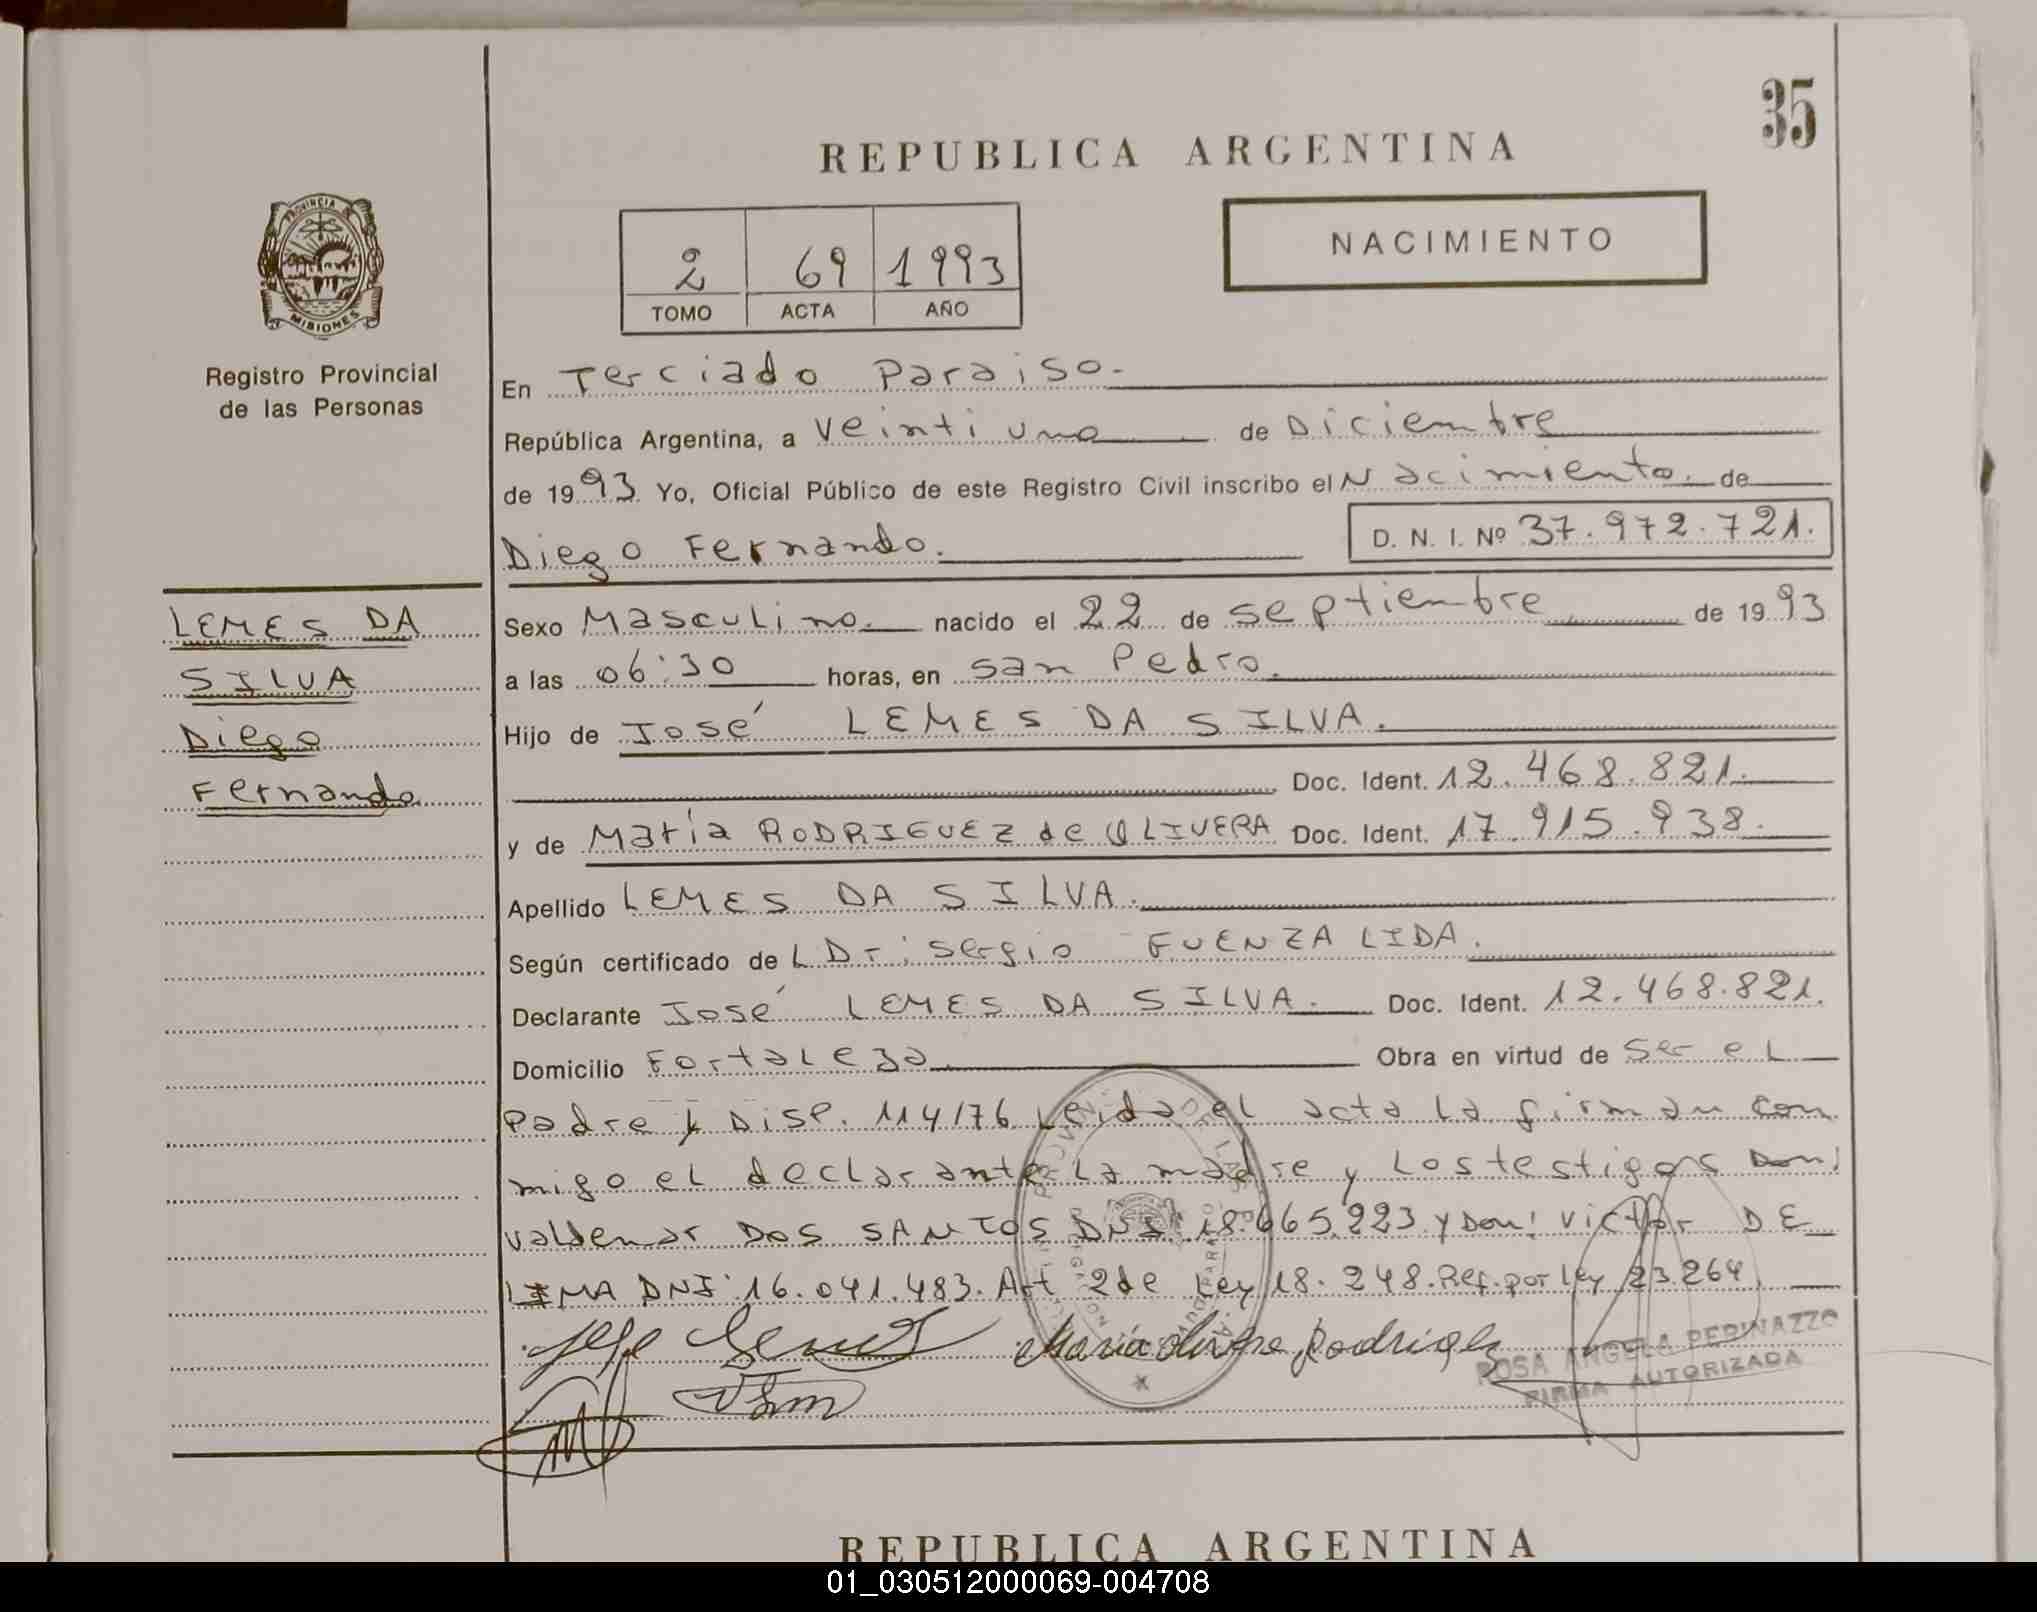 35
REPUBLICA ARGENTINA
PROVINCIA DE
MISIONES
Registro Provincial
de las Personas
2 69 1993
TOMO ACTA AÑO
NACIMIENTO
En Terciado Paraiso.
República Argentina, a Veintiuno de Diciembre
de 1993 Yo, Oficial Público de este Registro Civil inscribo el Nacimiento. de
Diego Fernando. D. N. I. Nº 37.972.721.
LEMES DA
SILVA
Diego
Fernando
Sexo Masculino. nacido el 22 de septiembre de 1993
a las 06:30 horas, en San Pedro.
Hijo de José LEMES DA SILVA.
Doc. Ident. 12.468.821.
y de María RODRIGUEZ de OLIVERA Doc. Ident. 17.915.938.
Apellido LEMES DA SILVA.
Según certificado de L Dr: Sergio FUENZALIDA.
Declarante José LEMES DA SILVA. Doc. Ident. 12.468.821.
Domicilio Fortaleza Obra en virtud de Ser el
Padre y Disp. 114/76 Leida el acta la firman con
migo el declarante La madre y Los testigos Don:
valdemar DOS SANTOS DNI: 18.665.223 y Don: Victor DE
LIMA DNI: 16.041.483. Art 2 de Ley 18.248. Ref. por Ley 23.264
María Rodriguez
ROSA ANGELA PEPINAZZO
FIRMA AUTORIZADA
REPUBLICA ARGENTINA
01_030512000069-004708